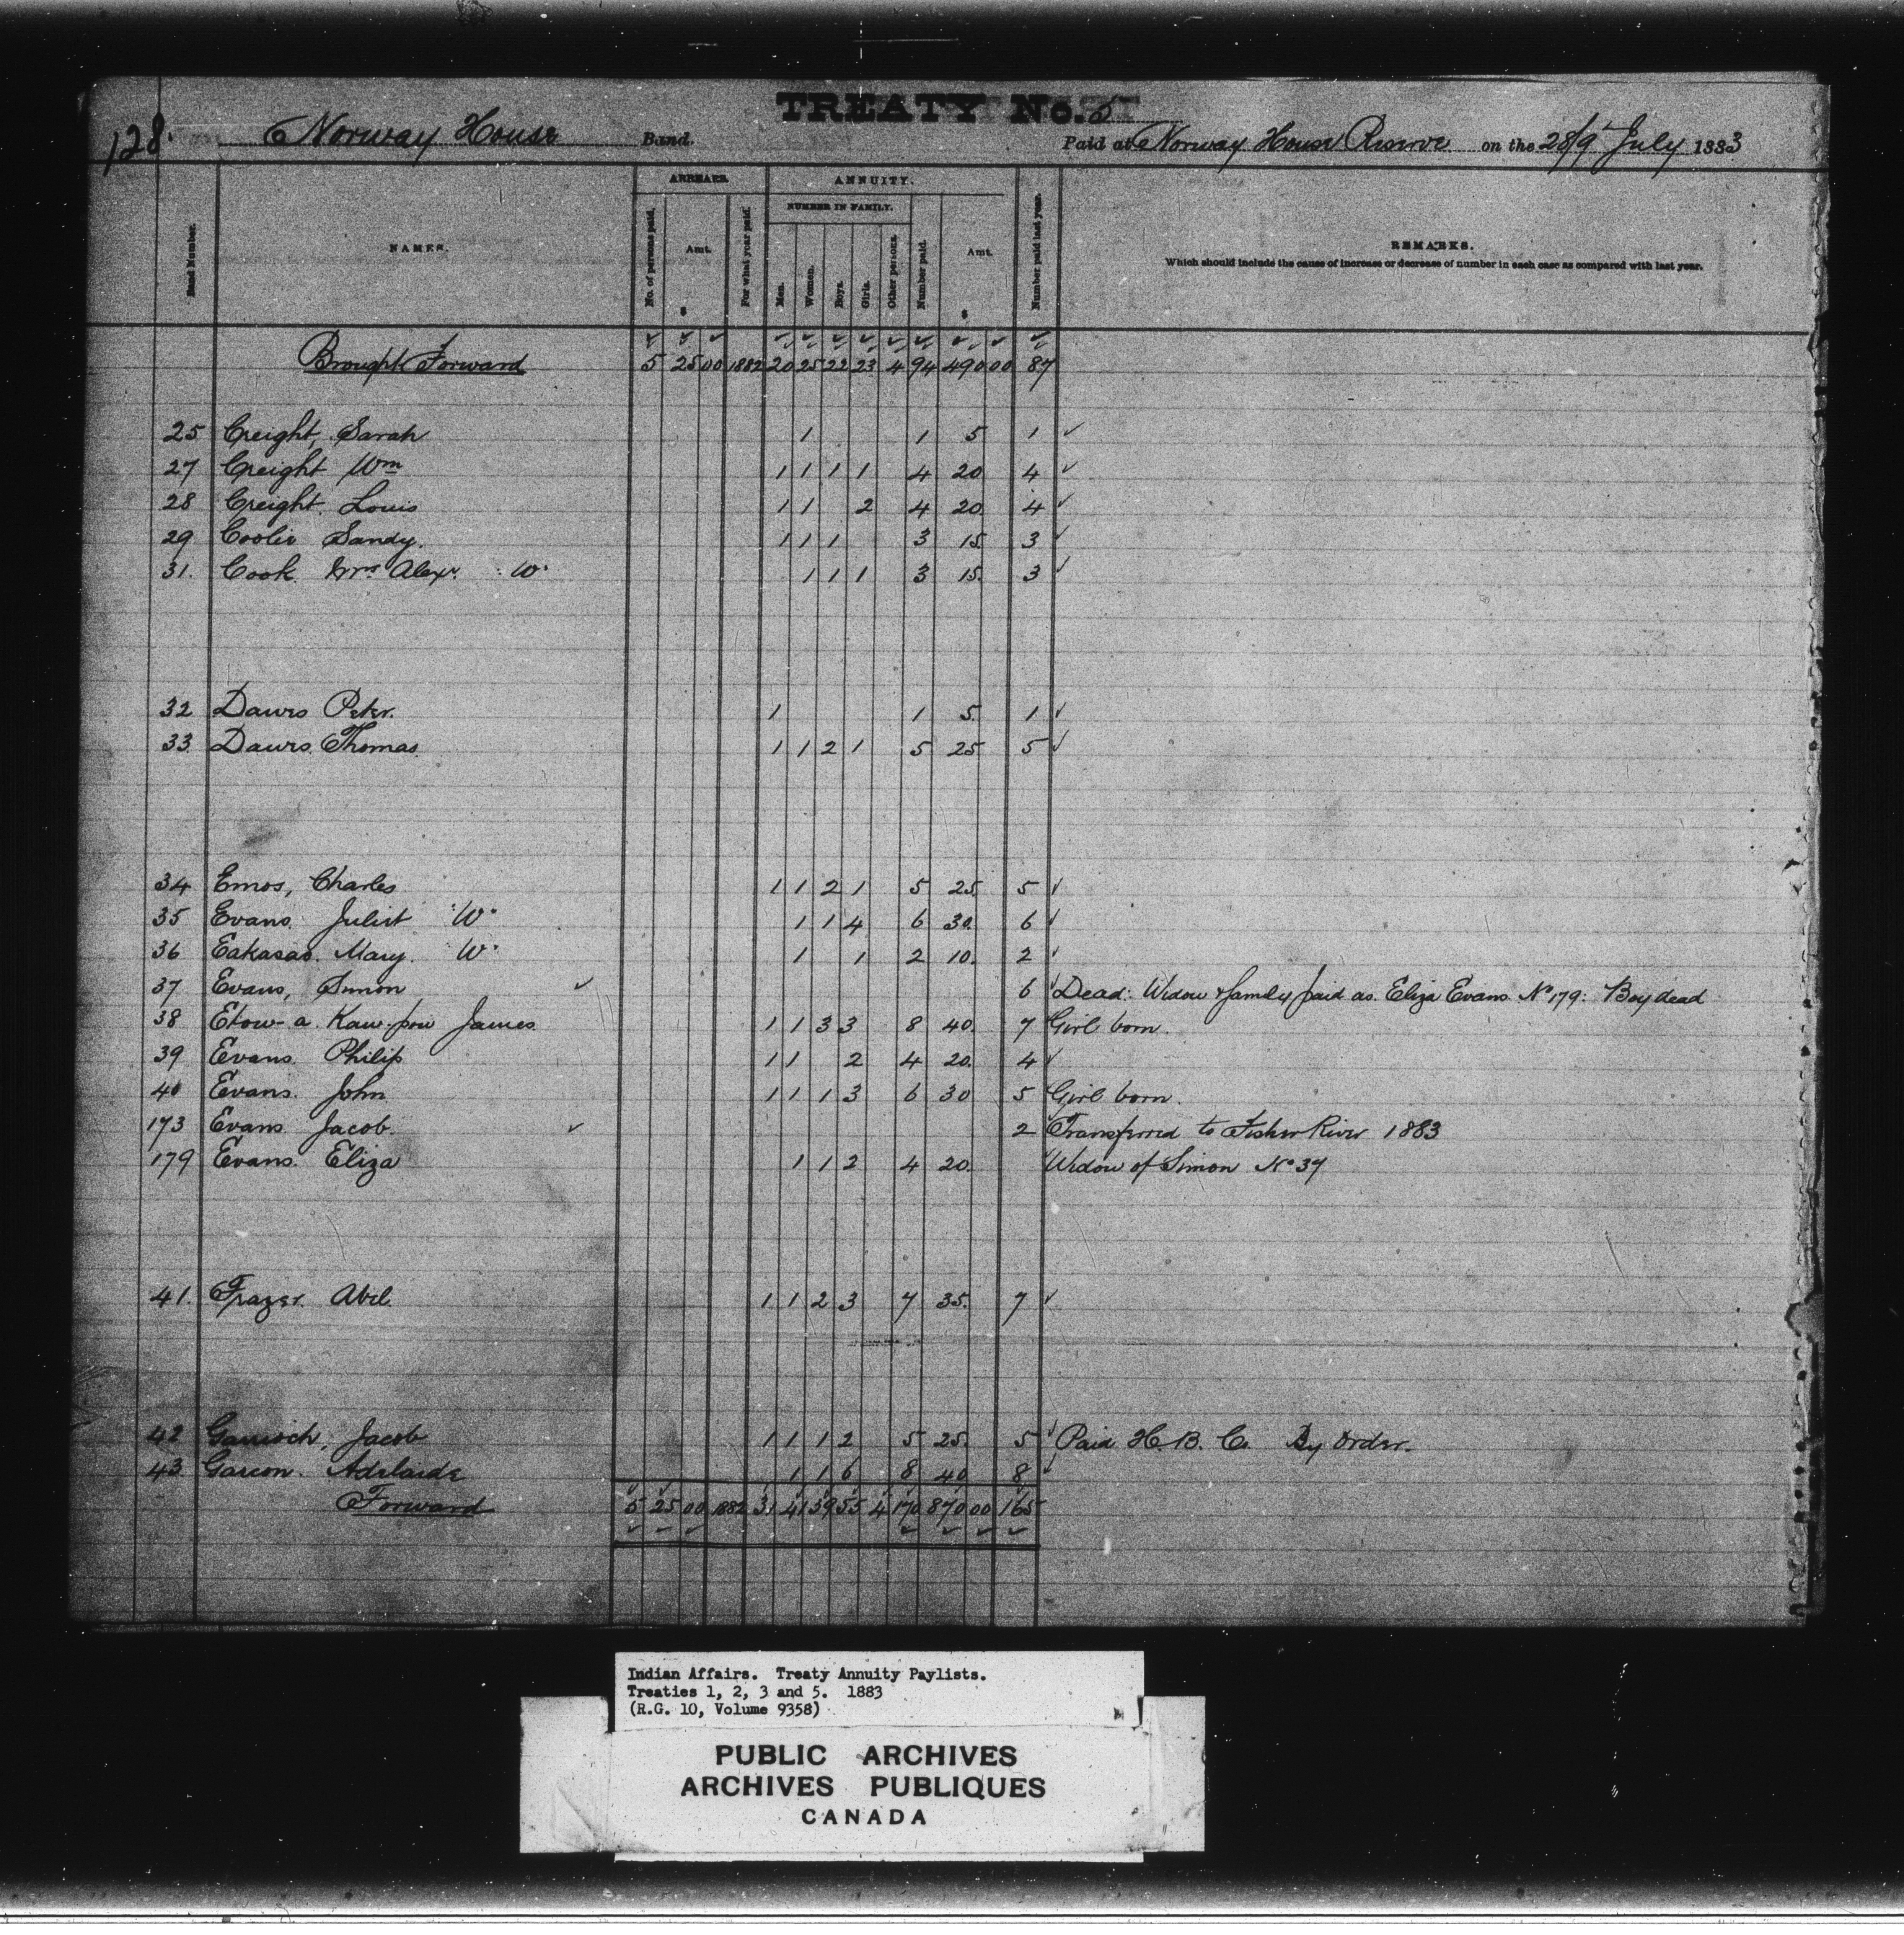 TREATY No. 5
128. Norway House Band. Paid at Norway House Reserve on the 28/9 July 1883
Band Number. NAMES. ARREARS. No. of persons paid. Amt. $ For what year paid. ANNUITY. NUMBER IN FAMILY. Men. Women. Boys. Girls. Other persons. Number paid. Amt. $ Number paid last year. REMARKS.
Which should include the cause of increase or decrease of number in each case as compared with last year.
Brought Forward 5 25 00 1882 20 25 22 23 4 94 490 00 87
25 Creight, Sarah 1 1 5 1 ✓
27 Creight Wm 1 1 1 1 4 20 4 ✓
28 Creight. Louis 1 1 2 4 20 4 ✓
29 Coolie Sandy. 1 1 1 3 15 3 ✓
31. Cook Mrs Alexr. W. 1 1 1 3 15. 3 ✓
32 Dawes Peter. 1 1 5. 1 ✓
33. Dawes. Thomas. 1 1 2 1 5 25 5 ✓
34 Emos, Charles 1 1 2 1 5 25. 5 ✓
35 Evans. Juliet W. 1 1 4 6 30. 6 ✓
36 Eakasas. Mary. W. 1 1 2 10. 2 ✓
37 Evans, Simon ✓ 6 ✓ Dead: Widow & family paid as Eliza Evans No 179: Boy dead
38 Etow-a-Kaw-pow James 1 1 3 3 8 40. 7 Girl born.
39 Evans. Philip 1 1 2 4 20. 4 ✓
40 Evans. John 1 1 1 3 6 30 5 Girl born.
173 Evans Jacob. ✓ 2 Transferred to Fisher River 1883
179 Evans. Eliza 1 1 2 4 20. Widow of Simon No 37
41. Frazer. Abel. 1 1 2 3 7 35. 7 ✓
42 Garrioch, Jacob 1 1 1 2 5 25. 5 ✓ Paid H. B. Co. By Order.
43. Garcon. Adelaide 1 1 6 8 40 8 ✓
Forward 5 25 00 1882 31 41 39 55 4 170 870 00 165
Indian Affairs. Treaty Annuity Paylists.
Treaties 1, 2, 3 and 5. 1883
(R.G. 10, Volume 9358)
PUBLIC ARCHIVES
ARCHIVES PUBLIQUES
CANADA